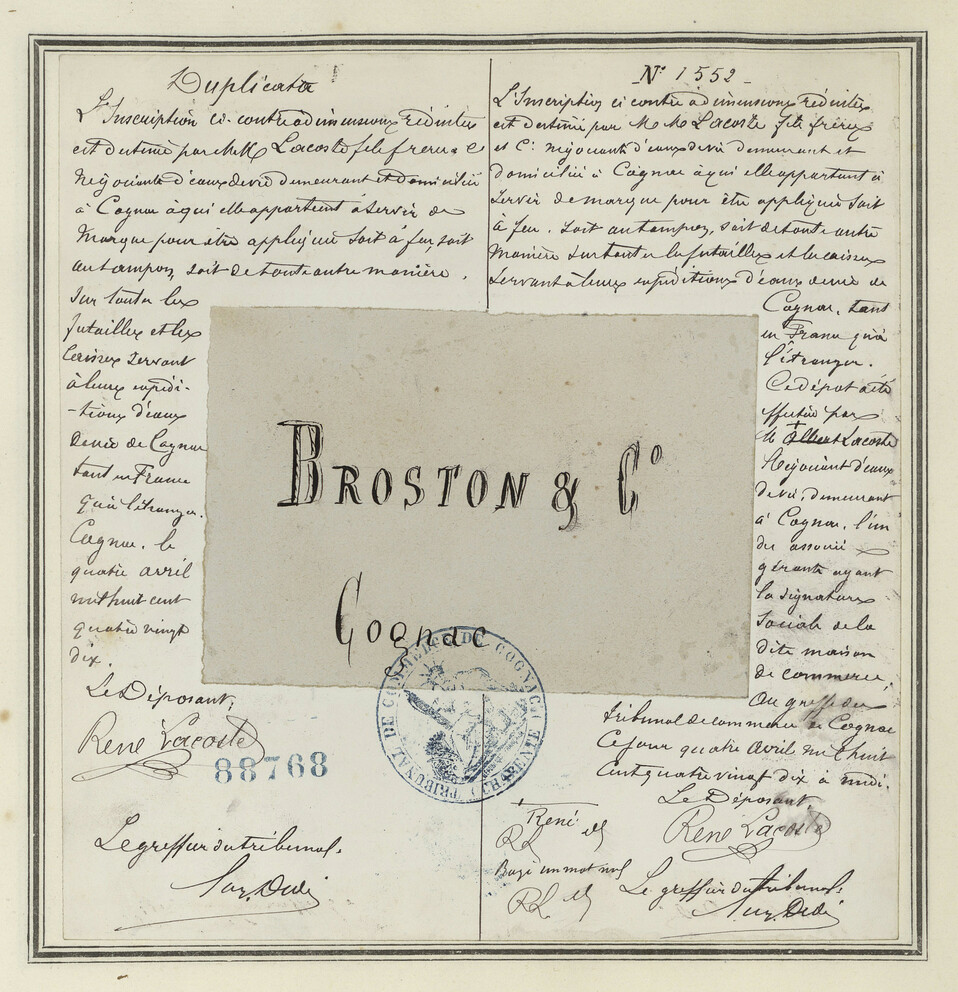 Duplicata
L'Inscription ci-contre à dimensions réduites
est destiné par M.M Lacoste fils frères & C
Négociants d'eaux de vie demeurant et domicilié
à Cognac à qui elle appartient a Servir de
Marque pour être appliqué Soit à feu soit
au tampon, soit de toute autre manière.
Sur toutes les
futailles et les
Caisses Servant
à leurs expédi-
-tions d'eaux
de vie de Cognac
tant en France
qu'à l'étranger.
Cognac, le
quatre avril
mil huit cent
quatre vingt
dix.
Le Déposant,
René Lacoste
88768
Le greffier du tribunal.
N° 1552
L'Inscription ci contre à dimensions réduites
est destiné par M M Lacoste fils frères
et Cie négociants d'eaux de vie demeurant et
domicilié à Cognac à qui elle appartient à
Servir de marque pour être appliqué Soit
à feu, Soit au tampon, soit de toute autre
Manière sur toutes les futailles et les caisses
Servant à leurs expéditions d'eaux de vie de
Cognac, tant
en France qu'à
l'étranger.
Ce dépot a été
effectué par
M Albert Lacoste
Négociant d'eaux
de vie, demeurant
à Cognac, l'un
des associés
gérants ayant
la signature
Sociale de la
dite maison
de commerce,
Au greffe du
tribunal de commerce de Cognac
Ce jour quatre Avril mil huit
Cent quatre vingt dix à midi.
Le Déposant,
René Lacoste
Le greffier du tribunal.
René
RL
Rayé un mot nul
RL
BROSTON & Cº
Cognac
TRIBUNAL DE COMMERCE DE COGNAC (CHARENTE)